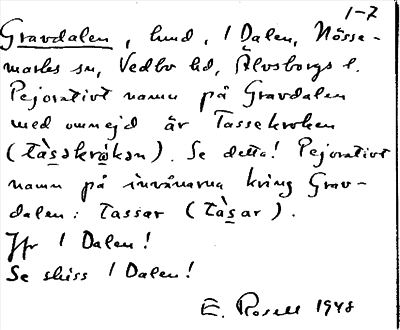 1-7
Gravdalen, hmd, i Dalen, Nösse-
marks sn, Vedbo hd, Älvsborgs l.
Pejorativt namn på Gravdalen
med omnejd är Tassekroken
(tàs̲əkrå̲kən). Se detta! Pejorativt
namn på invånarna kring Grav-
dalen: Tassar (tàs̲ar).
Jfr i Dalen!
Se skiss i Dalen!
E. Rosell 1948